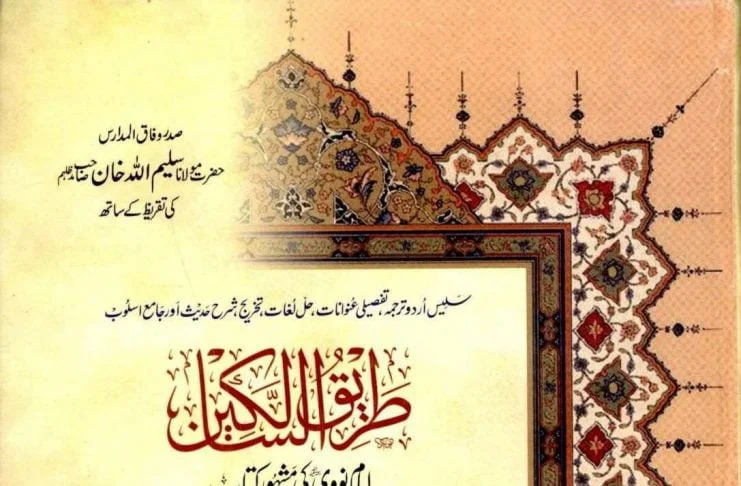 صدر وفاق المدارس
حضرت مولانا سلیم اللہ خان صاحب
کی تقریظ کے ساتھ
سَلیس اُردو ترجمہ، تفصیلی عُنوانات، حلِ لُغات، تخریج، شرح حَدیث اَور جَامع اسلُوب
طَرِيقُ السَّالِكِين
امام نووی کی مَشہُور کتاب